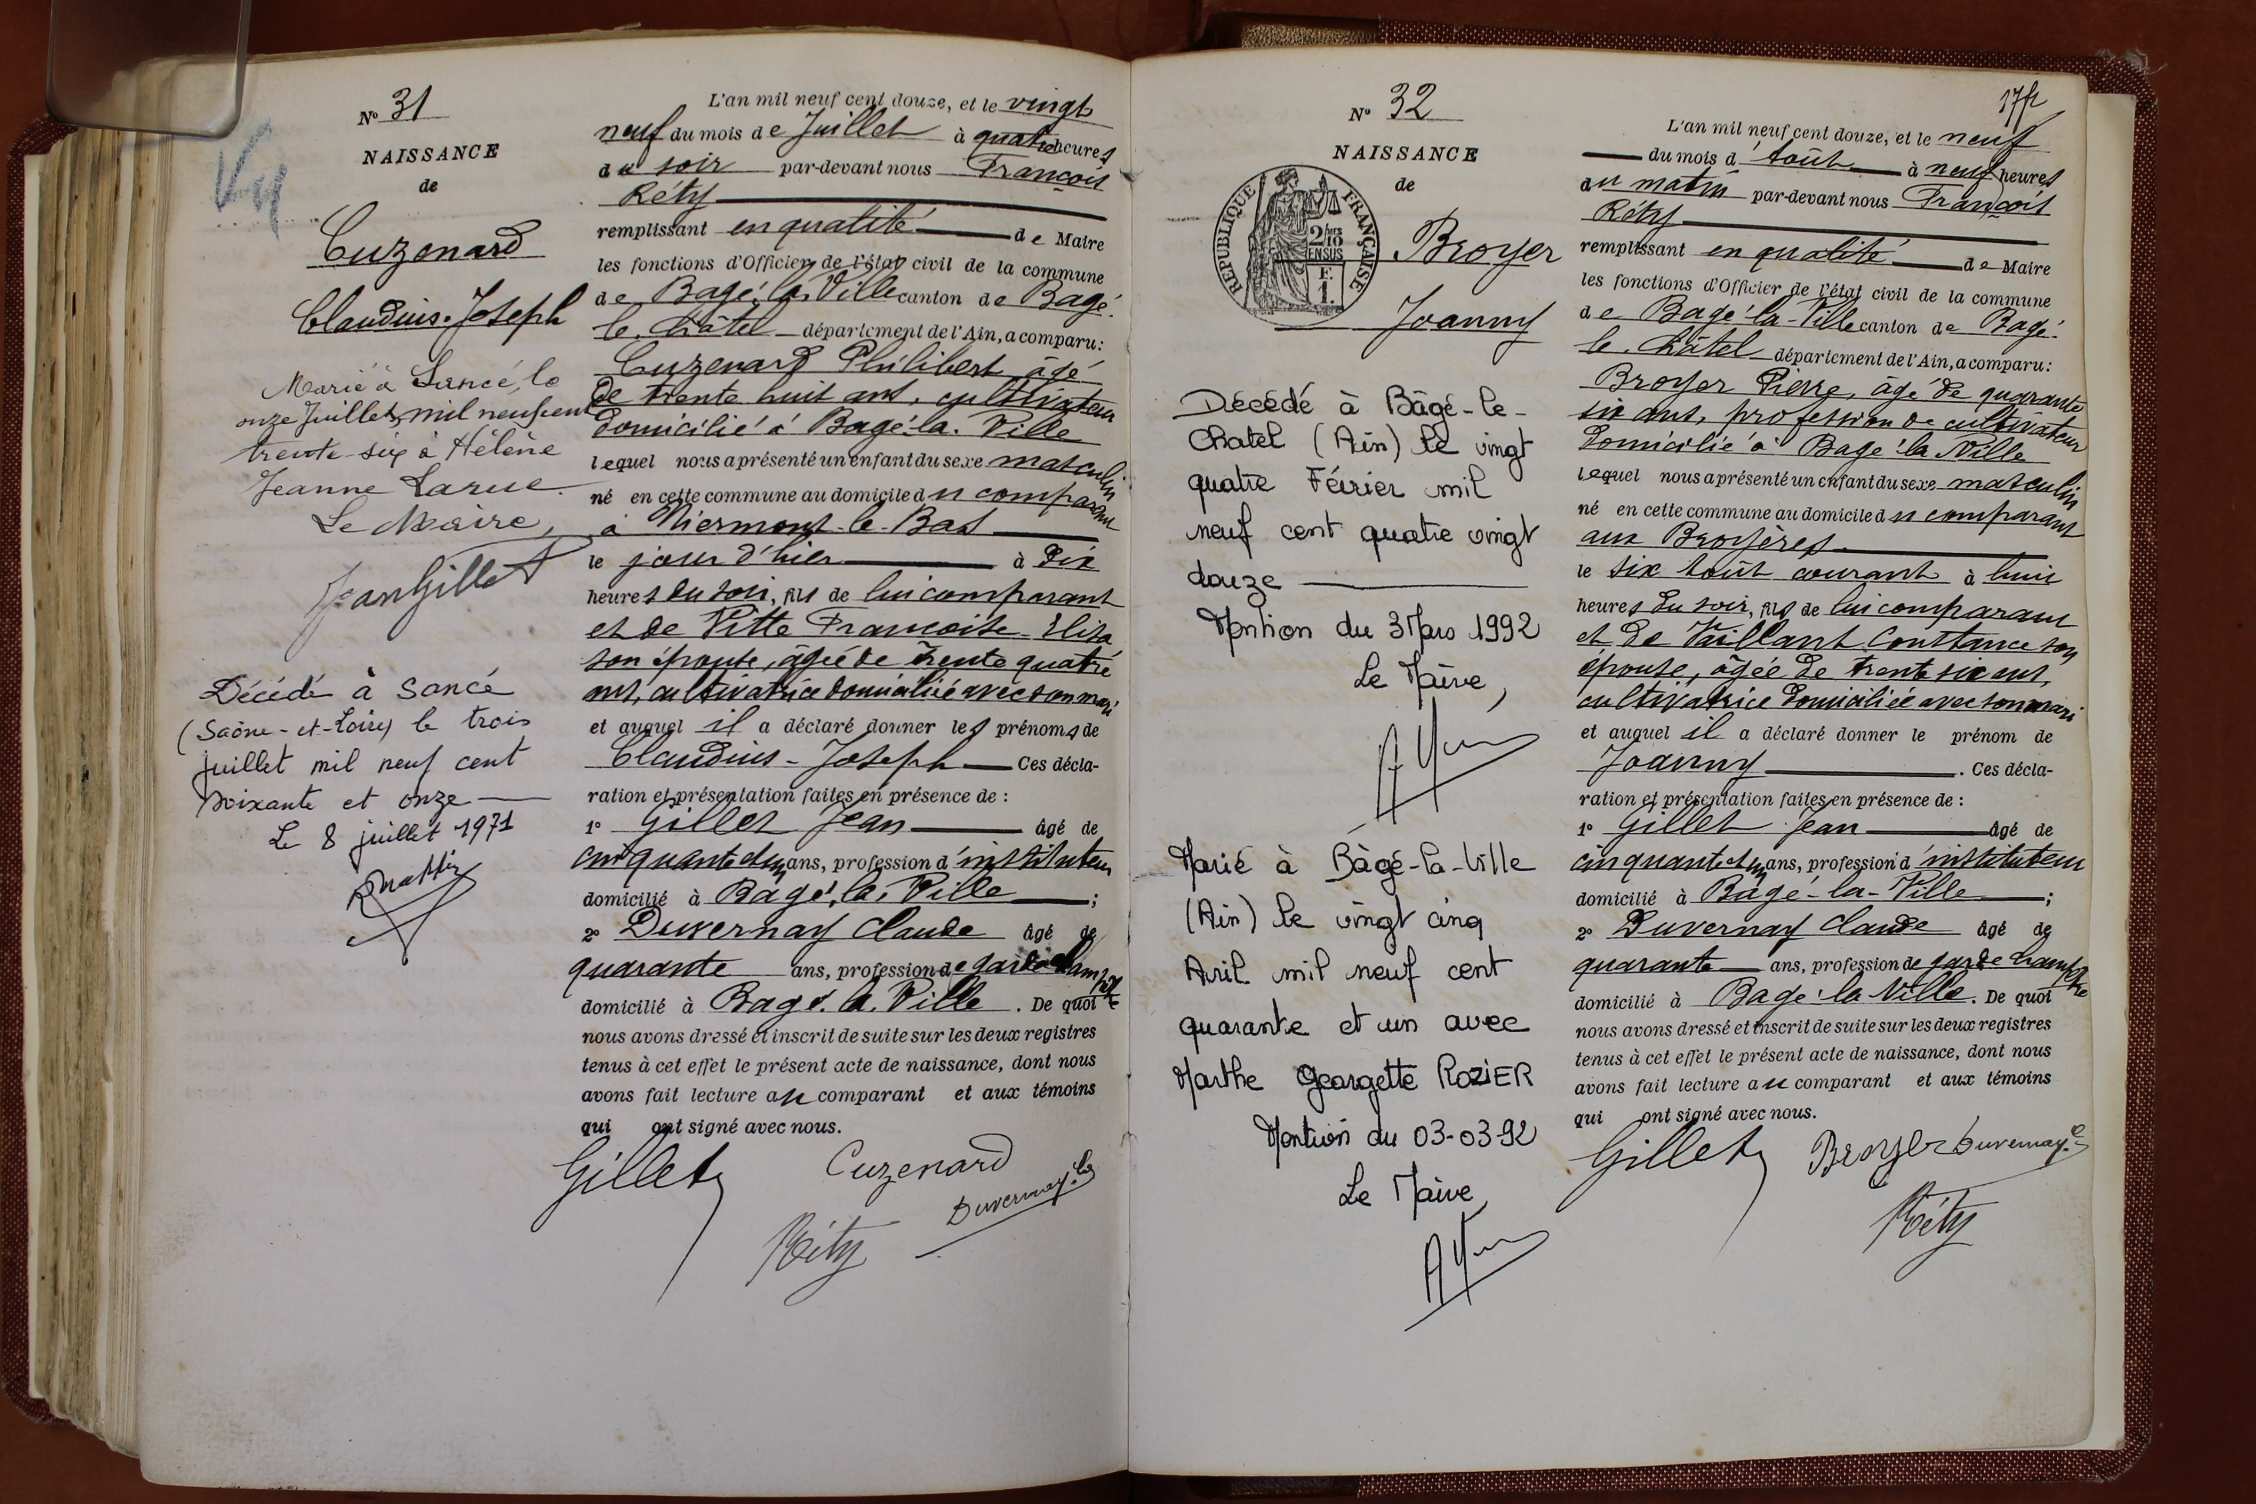 N° 31
NAISSANCE
de
Cuzenard
Claudius-Joseph
Marié à Sancé, le
onze Juillet mil neuf cent
trente-six à Hélène
Jeanne Larue.
Le Maire,
Jean Gillet
Décédé à Sancé
(Saône-et-Loire) le trois
juillet mil neuf cent
soixante et onze
Le 8 juillet 1971
L'an mil neuf cent douze, et le vingt
neuf du mois de Juillet à quatre heures
du soir par-devant nous François
Réty
remplissant en qualité de Maire
les fonctions d'Officier de l'état civil de la commune
de Bagé-la-Ville canton de Bagé-
le-Châtel département de l'Ain, a comparu:
Cuzenard Philibert âgé
de trente huit ans, cultivateur
domicilié à Bagé-la-Ville
lequel nous a présenté un enfant du sexe masculin
né en cette commune au domicile du comparant
à Niermont-le-Bas
le jour d'hier à dix
heures du soir, fils de lui comparant
et de Pitte Francoise-Elisa
son épouse, âgée de trente quatre
ans, cultivatrice domiciliée avec son mari
et auquel il a déclaré donner les prénoms de
Claudius-Joseph Ces décla-
ration et présentation faites en présence de :
1° Gillet Jean âgé de
cinquante et un ans, profession d'instituteur
domicilié à Bagé-la-Ville ;
2° Duvernay Claude âgé de
quarante ans, profession de garde champêtre
domicilié à Bagé-la-Ville . De quoi
nous avons dressé et inscrit de suite sur les deux registres
tenus à cet effet le présent acte de naissance, dont nous
avons fait lecture au comparant et aux témoins
qui ont signé avec nous.
Gillet Cuzenard
Réty Duvernay Cde
N° 32
NAISSANCE
de
RÉPUBLIQUE FRANÇAISE
2/10
EN SUS
F.
1.
Broyer
Joanny
Décédé à Bâgé-le-
Chatel (Ain) le vingt
quatre Février mil
neuf cent quatre vingt
douze
Mention du 3 Mars 1992
Le Maire,
Marié à Bâgé-la-Ville
(Ain) le vingt cinq
Avril mil neuf cent
quarante et un avec
Marthe Georgette ROZIER
Mention du 03-03-92
Le Maire,
L'an mil neuf cent douze, et le neuf
du mois d'Août à neuf heures
du matin par-devant nous François
Réty
remplissant en qualité de Maire
les fonctions d'Officier de l'état civil de la commune
de Bagé-la-Ville canton de Bagé-
le-Châtel département de l'Ain, a comparu:
Broyer Pierre, âgé de quarante
six ans, profession de cultivateur
domicilié à Bagé-la-Ville
lequel nous a présenté un enfant du sexe masculin
né en cette commune au domicile du comparant
aux Broyères
le six Août courant à huit
heures du soir, fils de lui comparant
et de Vaillant Constance son
épouse, âgée de trente six ans,
cultivatrice domiciliée avec son mari
et auquel il a déclaré donner le prénom de
Joanny . Ces décla-
ration et présentation faites en présence de :
1° Gillet Jean âgé de
cinquante et un ans, profession d'instituteur
domicilié à Bagé-la-Ville ;
2° Duvernay Claude âgé de
quarante ans, profession de garde champêtre
domicilié à Bagé-la-Ville . De quoi
nous avons dressé et inscrit de suite sur les deux registres
tenus à cet effet le présent acte de naissance, dont nous
avons fait lecture au comparant et aux témoins
qui ont signé avec nous.
Gillet Broyer Duvernay C
Réty